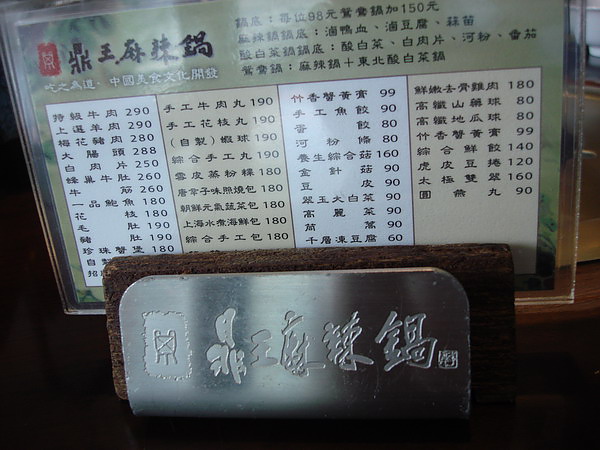 鼎王麻辣鍋
吃之為道·中國美食文化開發
鍋底：每位98元鴛鴦鍋加150元
麻辣鍋鍋底：滷鴨血、滷豆腐、蒜苗
酸白菜鍋鍋底：酸白菜、白肉片、河粉、番茄
鴛鴦鍋：麻辣鍋＋東北酸白菜鍋
特級牛肉 290
上選羊肉 290
梅花豬肉 280
大腸頭 288
白肉片 250
蜂巢牛肚 260
牛筋 260
一品鮑魚 180
花枝 180
毛肚 190
豬肚 190
珍珠蟹堡 180
手工牛肉丸 190
手工花枝丸 190
(自製)蝦球 190
綜合手工丸 190
雪皮蒸粉粿 180
唐辛子味照燒包 180
朝鮮元氣蔬菜包 180
上海水煮海鮮包 180
綜合手工包 180
竹香蟹黃膏 99
手工魚餃 90
蛋餃 80
河粉條 80
養生綜合菇 160
金針菇 90
豆皮 90
翠玉大白菜 90
高麗菜 90
茼蒿 90
千層凍豆腐 60
鮮嫩去骨雞肉 180
高纖山藥球 80
高纖地瓜球 80
竹香蟹黃膏 99
綜合鮮餃 140
虎皮豆捲 120
太極雙翠 160
圓燕丸 90
鼎王麻辣鍋